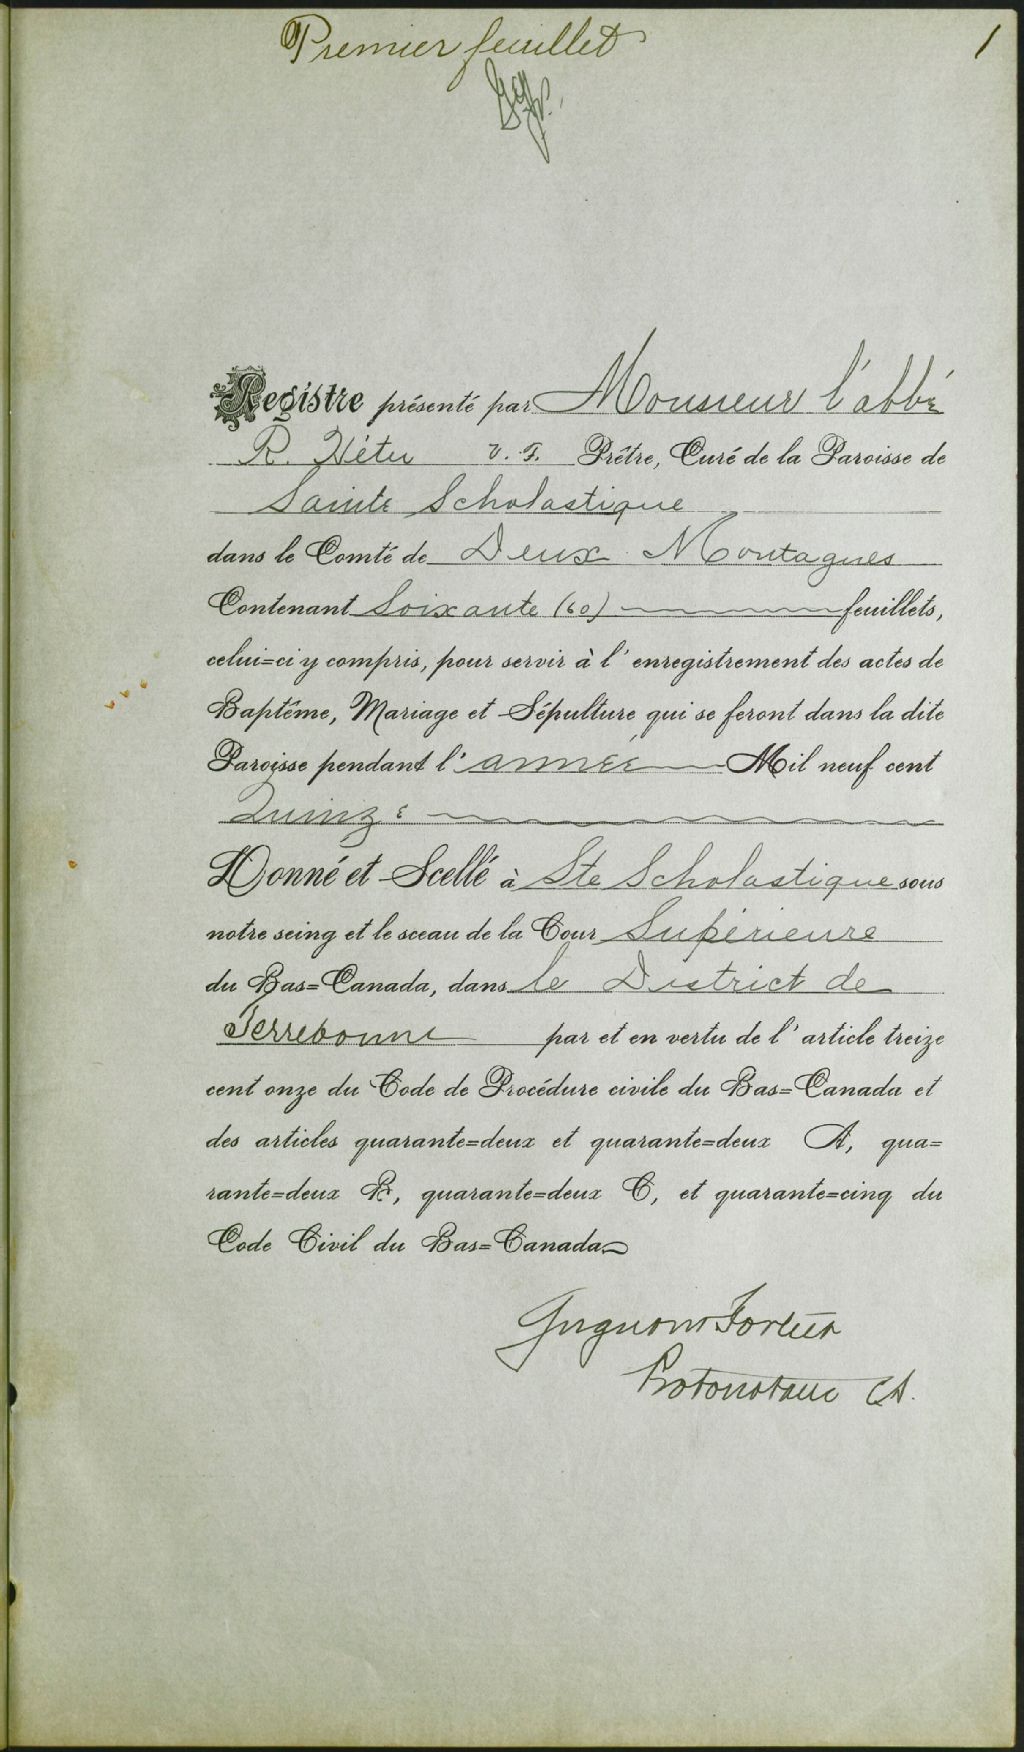 Premier feuillet
1
Registre présenté par Monsieur l'abbé
R. Hétu V. F. Prêtre, Curé de la Paroisse de
Sainte Scholastique
dans le Comté de Deux Montagnes
Contenant Soixante (60) feuillets,
celui=ci y compris, pour servir à l'enregistrement des actes de
Baptême, Mariage et Sépulture qui se feront dans la dite
Paroisse pendant l'année Mil neuf cent
Quinze
Donné et Scellé à Ste Scholastique sous
notre seing et le sceau de la Cour Supérieure
du Bas=Canada, dans le District de
Terrebonne par et en vertu de l'article treize
cent onze du Code de Procédure civile du Bas=Canada et
des articles quarante=deux et quarante=deux A, qua=
rante=deux B, quarante=deux C, et quarante=cinq du
Code Civil du Bas=Canada
Fortier
Protonotaire